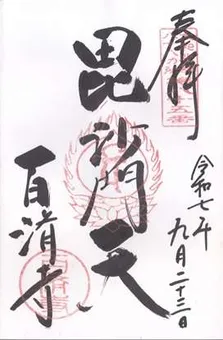 奉拝
毘沙門天
百済寺
令和七年
九月二十三日